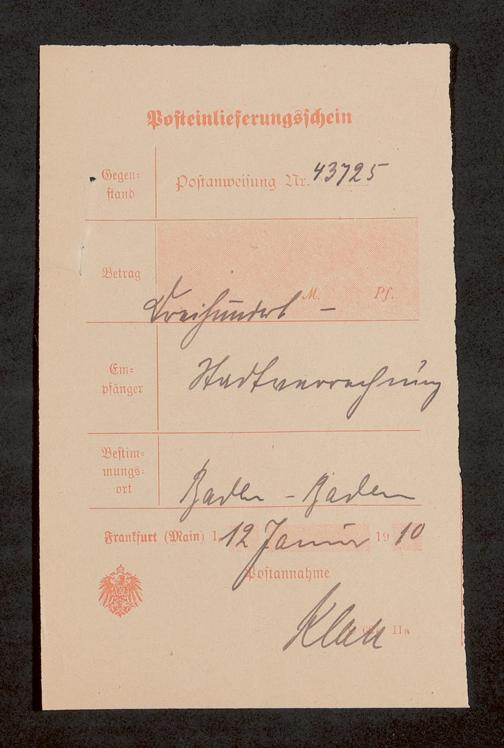 Posteinlieferungsschein
Gegen=
stand
Postanweisung Nr. 43725
Betrag
M. Pf.
Dreihundert –
Em=
pfänger
Stadtverrechnung
Bestim=
mungs=
ort
Baden - Baden
Frankfurt (Main) 1, 12 Januar 1910
Postannahme
IIa